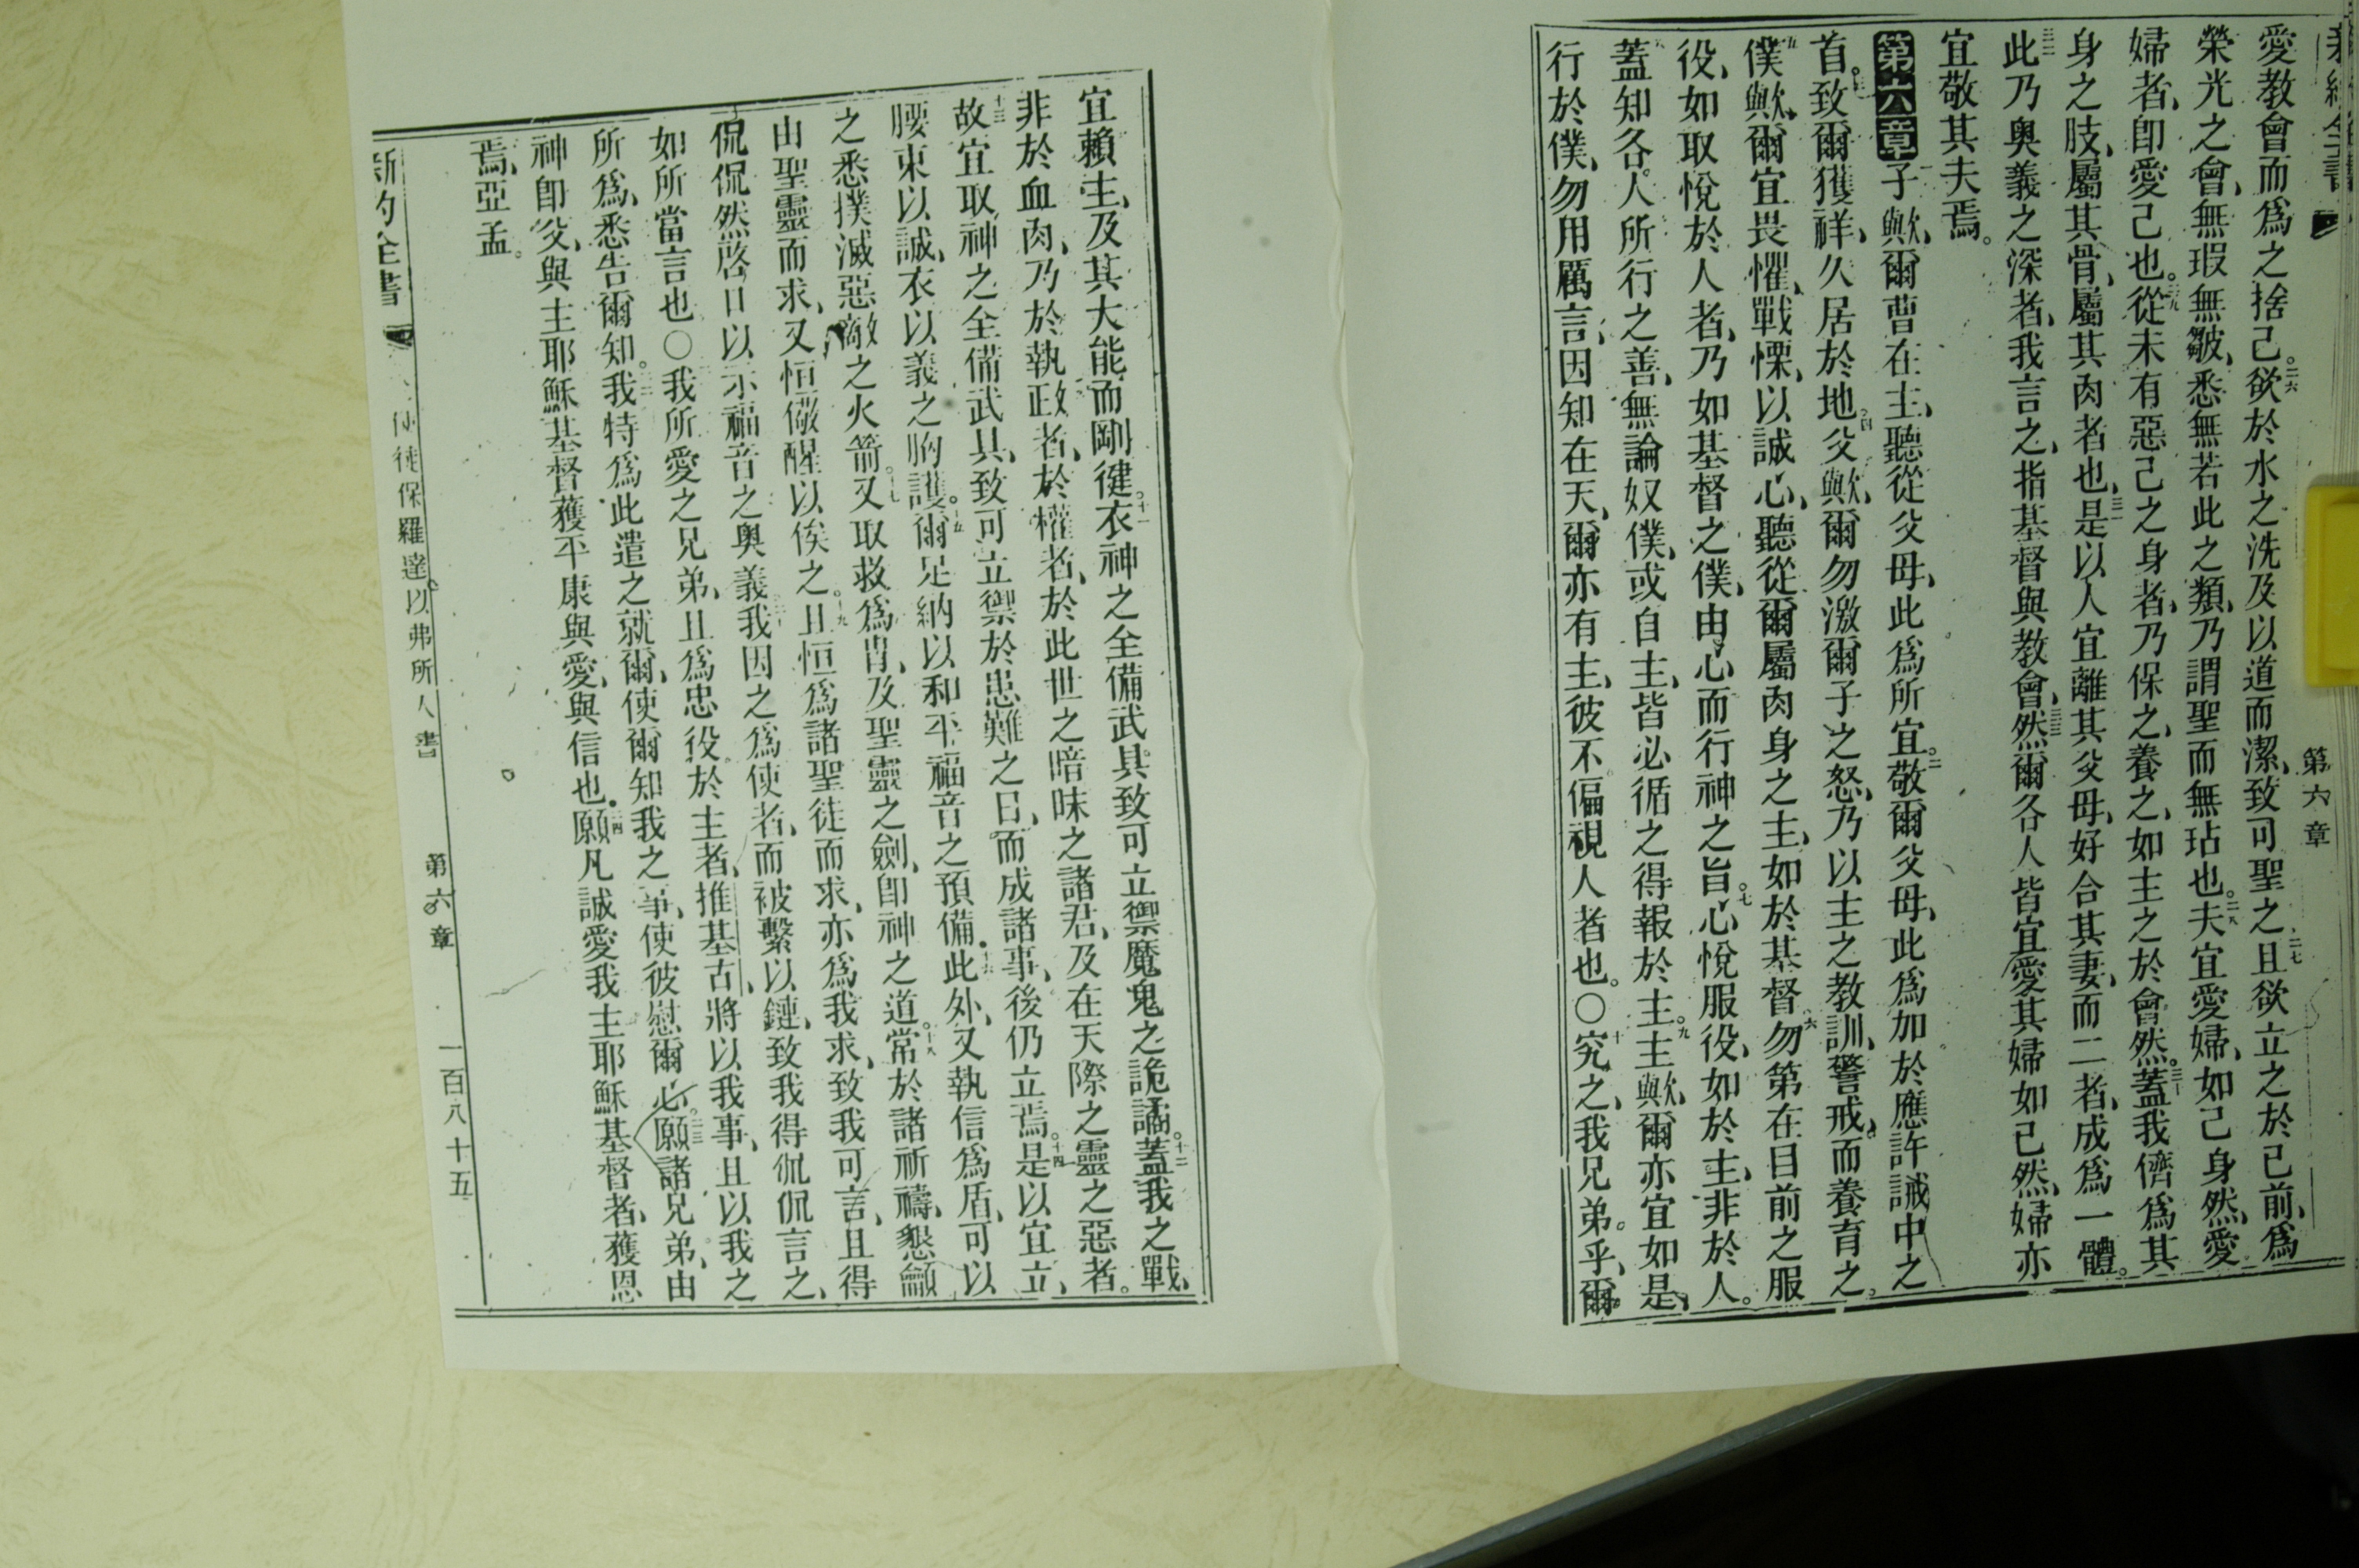 新約全書
第六章
愛教會而爲之捨己。二六欲於水之洗及以道而潔、致可聖之二七且欲立之於己前、爲
榮光之會、無瑕無皺、悉無若此之類、乃謂聖而無玷也。二八夫宜愛婦、如己身然、愛
婦者、卽愛己也。二九從未有惡己之身者、乃保之、養之、如主之於會然。三十蓋我儕爲其
身之肢、屬其骨、屬其肉者也、三一是以人宜離其父母、好合其妻、而二者、成爲一體。
三二此乃奧義之深者、我言之、指基督與教會、三三然爾各人皆宜愛其婦如己然、婦亦
宜敬其夫焉。
第六章一子歟、爾曹在主、聽從父母、此爲所宜。二敬爾父母、此爲加於應許誡中之
首。三致爾獲祥、久居於地。四父歟、爾勿激爾子之怒、乃以主之教訓、警戒、而養育之。
五僕歟、爾宜畏懼、戰慄、以誠心、聽從爾屬肉身之主、如於基督、六勿第在目前之服
役、如取悅於人者、乃如基督之僕、由心而行神之旨。七心悅服役、如於主、非於人。
八蓋知各人所行之善、無論奴僕、或自主、皆必循之得報於主。九主歟、爾亦宜如是、
行於僕、勿用厲言、因知在天、爾亦有主、彼不偏視人者也。○十究之、我兄弟乎、爾
宜賴主、及其大能而剛健。十一衣神之全備武具、致可立禦魔鬼之詭譎。十二蓋我之戰、
非於血肉、乃於執政者、於權者、於此世之暗昧之諸君、及在天際之靈之惡者。
十三故宜取神之全備武具、致可立禦於患難之日、而成諸事、後仍立焉。十四是以宜立、
腰束以誠、衣以義之胸護。十五爾足納以和平福音之預備。十六此外、又執信爲盾、可以
之悉撲滅惡敵之火箭。十七又取救爲冑、及聖靈之劍、卽神之道。十八常於諸祈禱、懇籲
由聖靈而求、又恒儆醒以俟之。十九且恒爲諸聖徒而求、亦爲我求、致我可言、且得
侃侃然啓口以示福音之奧義二十我因之爲使者、而被繫以鏈、致我得侃侃言之、
如所當言也○我所愛之兄弟、且爲忠役於主者、推基古、將以我事、且以我之
所爲、悉告爾知。我特爲此遣之就爾、使爾知我之事、使彼慰爾心。二三願諸兄弟、由
神卽父、與主耶穌基督獲平康與愛、與信也。二四願凡誠愛我主耶穌基督者、獲恩
焉、亞孟。
新約全書
使徒保羅達以弗所人書
第六章
一百八十五